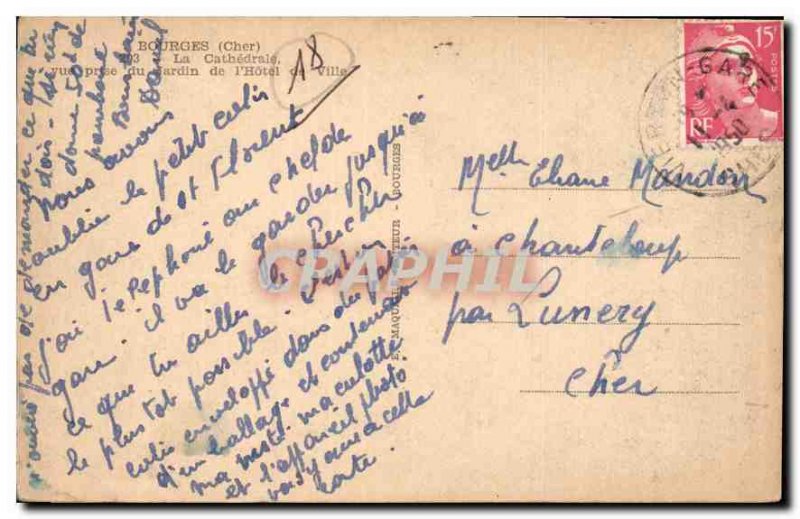 BOURGES (Cher)
893 La Cathédrale,
vue prise du Jardin de l'Hôtel de Ville
18
nous avons
oublié le petit colis
en gare de St Florent
j'ai téléphoné au chef de
gare. il va le garder jusqu'à
ce que tu ailles le chercher
le plus tôt possible. c'est un
colis enveloppé dans du papier
d'emballage et contenant
ma veste. ma culotte
et l'appareil photo
vas y avec cette
carte.
n'aurais pas de demander ce que tu
dois
donne
Daniel
E. MAQUAIRE EDITEUR - BOURGES
15F
POSTES
RF
VIERZON-GARE
1950
CHER
Melle Eliane Mandon
à Chanteloup
par Lunery
Cher
CPAPHIL